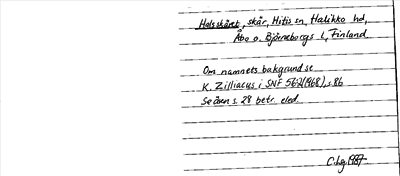 Halsskäret, skär, Hitis sn, Halikko hd,
Åbo o. Björneborgs l, Finland
Om namnets bakgrund se
K. Zilliacus i SNF 56-2(1968), s. 86
Se även s. 28 betr. eled.
C. Lg 1987